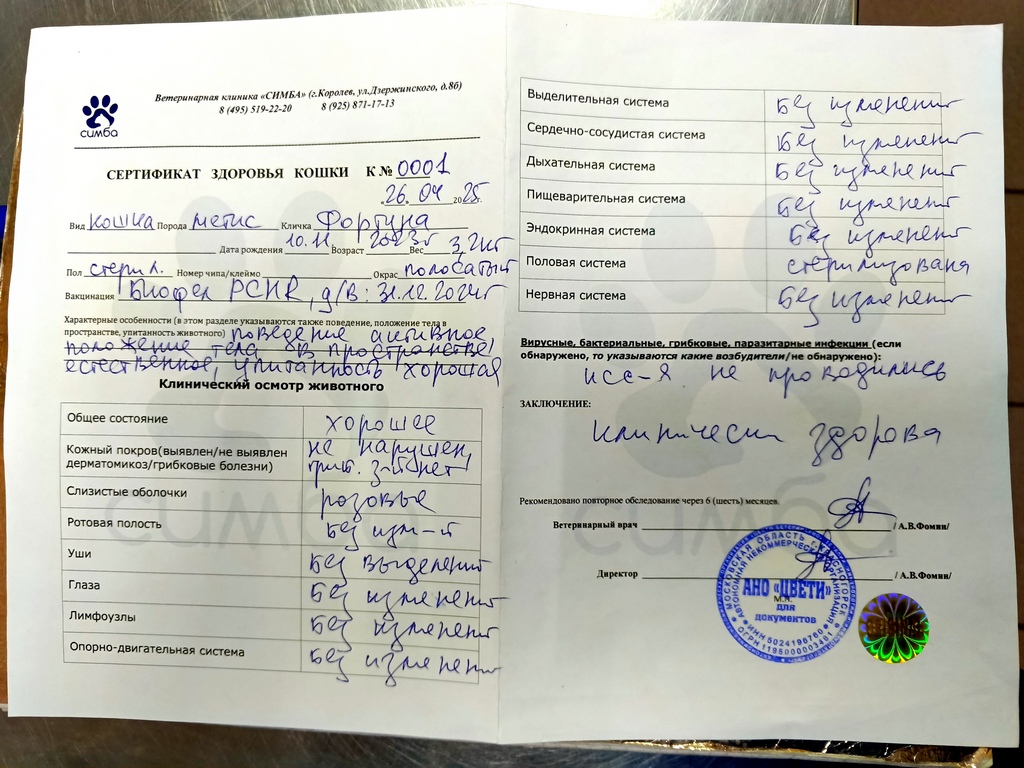 симба
Ветеринарная клиника «СИМБА» (г.Королев, ул.Дзержинского, д.8б)
8 (495) 519-22-20 8 (925) 871-17-13
СЕРТИФИКАТ ЗДОРОВЬЯ КОШКИ К № 0001
26. 04 2025г.
Вид кошка Порода метис Кличка Фортуна
Дата рождения 10.11. 2023г Возраст Вес 3,2кг
Пол стерил. Номер чипа/клеймо Окрас полосатый
Вакцинация Биофел PCHR, д/в: 31.12.2024г
Характерные особенности (в этом разделе указываются также поведение, положение тела в
пространстве, упитанность животного) поведение активное,
положение тела в пространстве
естественное, упитанность хорошая
Клинический осмотр животного
Общее состояние хорошее
Кожный покров(выявлен/не выявлен
дерматомикоз/грибковые болезни) не нарушен,
нет
Слизистые оболочки розовые
Ротовая полость без изм-й
Уши Без выделений
Глаза Без изменений
Лимфоузлы Без изменений
Опорно-двигательная система Без изменений
Выделительная система Без изменений
Сердечно-сосудистая система Без изменений
Дыхательная система Без изменений
Пищеварительная система Без изменений
Эндокринная система Без изменений
Половая система стерилизована
Нервная система Без изменений
Вирусные, бактериальные, грибковые, паразитарные инфекции (если
обнаружено, то указываются какие возбудители/не обнаружено):
исс-я не проводились
ЗАКЛЮЧЕНИЕ:
клинически здорова
Рекомендовано повторное обследование через 6 (шесть) месяцев.
Ветеринарный врач / А.В.Фомин/
Директор / А.В.Фомин/
МОСКОВСКАЯ ОБЛАСТЬ г. КРАСНОГОРСК
АВТОНОМНАЯ НЕКОММЕРЧЕСКАЯ ОРГАНИЗАЦИЯ
АНО «ЦВЕТИ»
М.П.
для
документов
ИНН 5024196760
ОГРН 1195000003491